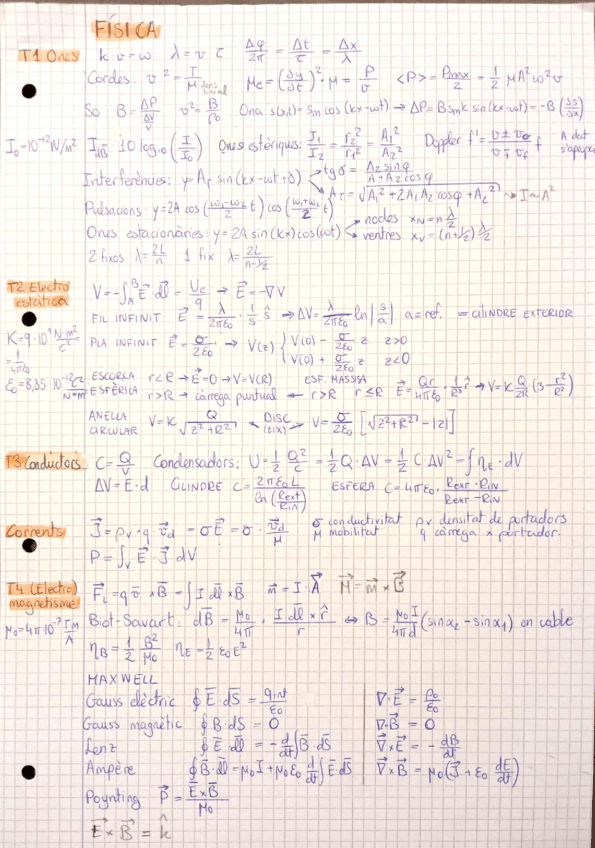 FÍSICA
T1 Ones k v = ω λ = v τ Δφ/2π = Δt/τ = Δx/λ
Cordes: v² = T/μ dens. lineal <P> = Pmax/2 = 1/2 μA²ω²v
So B = ΔP/(ΔV/V) v² = B/ρ₀ Ona s(x,t) = Sm cos(kx-ωt) → ΔP = B Sm k sin(kx-ωt) = -B(∂s/∂x)
I₀ = 10⁻¹² W/m² I dB 10 log₁₀(I/I₀) Ones esfèriques: I₁/I₂ = r₂²/r₁² = A₁²/A₂² Doppler f' = f A dalt
Interferències: y = Ar sin(kx-ωt+δ) tg σ = A₂ sin φ/A+A₂ cos φ
Ar = √A₁² + 2A₁A₂ cos φ + A₂² → I ~ A²
Pulsacions: y = 2A cos(ω₁-ω₂/2 t) cos(ω₁+ω₂/2 t)
Ones estacionàries: y = 2A sin(kx) cos(ωt) nodes x_N = n λ/2
ventres x_V = (n+1/2) λ/2
2 fixos λ = 2L/n 1 fix λ = 2L/n-1/2
T2 Electro estàtica V = -∫_A^B E⃗ dl⃗ = Ue/q → E⃗ = -∇V
FIL INFINIT E⃗ = λ/2πε₀ · 1/s ŝ → ΔV = λ/2πε₀ ln|s/a| a = ref. = CILINDRE EXTERIOR
K = 9·10⁹ N·m²/C² = 1/4πε₀ PLA INFINIT E⃗ = σ/2ε₀ → V(z) V(0) - σ/2ε₀ z z>0
V(0) + σ/2ε₀ z z<0
ε₀ = 8,85·10⁻¹² C²/N·m² ESCORÇA ESFÈRICA r<R → E⃗ = 0 → V = V(R) ESF. MASSISA r≤R E⃗ = Qr/4πε₀ · 1/R³ r̂ → V = K Q/2R (3 - r²/R²)
r>R → càrrega puntual ← r>R
ANELLA CIRCULAR V = K Q/√z²+R² DISC (eix) V = σ/2ε₀ [√z²+R² - |z|]
T3 Conductors C = Q/V Condensadors: U = 1/2 Q²/C = 1/2 Q·ΔV = 1/2 C ΔV² = ∫ηE·dV
ΔV = E·d CILINDRE C = 2πε₀L/ln(Rext/Rin) ESFERA C = 4πε₀ · Rext·Rin/Rext-Rin
Corrents J⃗ = ρv·q·v⃗d = σE⃗ = σ · v⃗d/μ σ conductivitat ρv densitat de portadors
μ mobilitat q càrrega x portador.
P = ∫v E⃗·J⃗ dV
T4 (Electro) magnetisme F⃗L = q v⃗ × B⃗ = ∫ I dl⃗ × B⃗ m⃗ = I·A⃗ M⃗ = m⃗ × B⃗
μ₀ = 4π·10⁻⁷ Tm/A Biot-Savart: dB⃗ = μ₀/4π · I dl⃗ × r̂/r ⇔ B = μ₀I/4πd (sin α₂ - sin α₁) en cable
ηB = 1/2 B²/μ₀ ηE = 1/2 ε₀E²
MAXWELL
Gauss elèctric ∮E⃗·dS⃗ = qint/ε₀ ∇·E⃗ = ρ₀/ε₀
Gauss magnètic ∮B·dS = 0 ∇·B⃗ = 0
Lenz ∮E⃗·dl⃗ = -d/dt ∫B⃗·dS ∇⃗×E⃗ = -dB/dt
Ampère ∮B⃗·dl⃗ = μ₀I + μ₀ε₀ d/dt ∫E⃗·dS ∇⃗×B⃗ = μ₀(J⃗ + ε₀ dE/dt)
Poynting P⃗ = E⃗×B⃗/μ₀
E⃗ × B⃗ = k̂